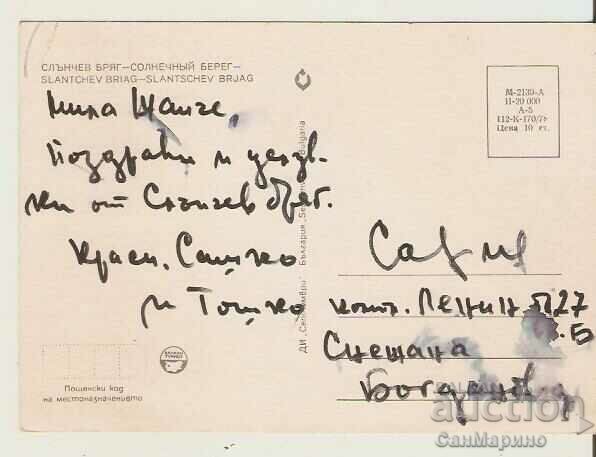 СЛЪНЧЕВ БРЯГ—СОЛНЕЧНЫЙ БЕРЕГ—
SLANTCHEV BRIAG—SLANTSCHEV BRJAG
Мила
Поздрави и целув-
ки от Слънчев бряг.
Краси, Сашко
и Тошко
Пощенски код
на местоназначението
ДИ „Септември" България
Bulgaria
М-2139-А
П-20 000
А-5
112-К-170/7
Цена 10 ст.
София
компл. Ленин бл 27
Б
Снежана
Богданова
auction
СанМарино